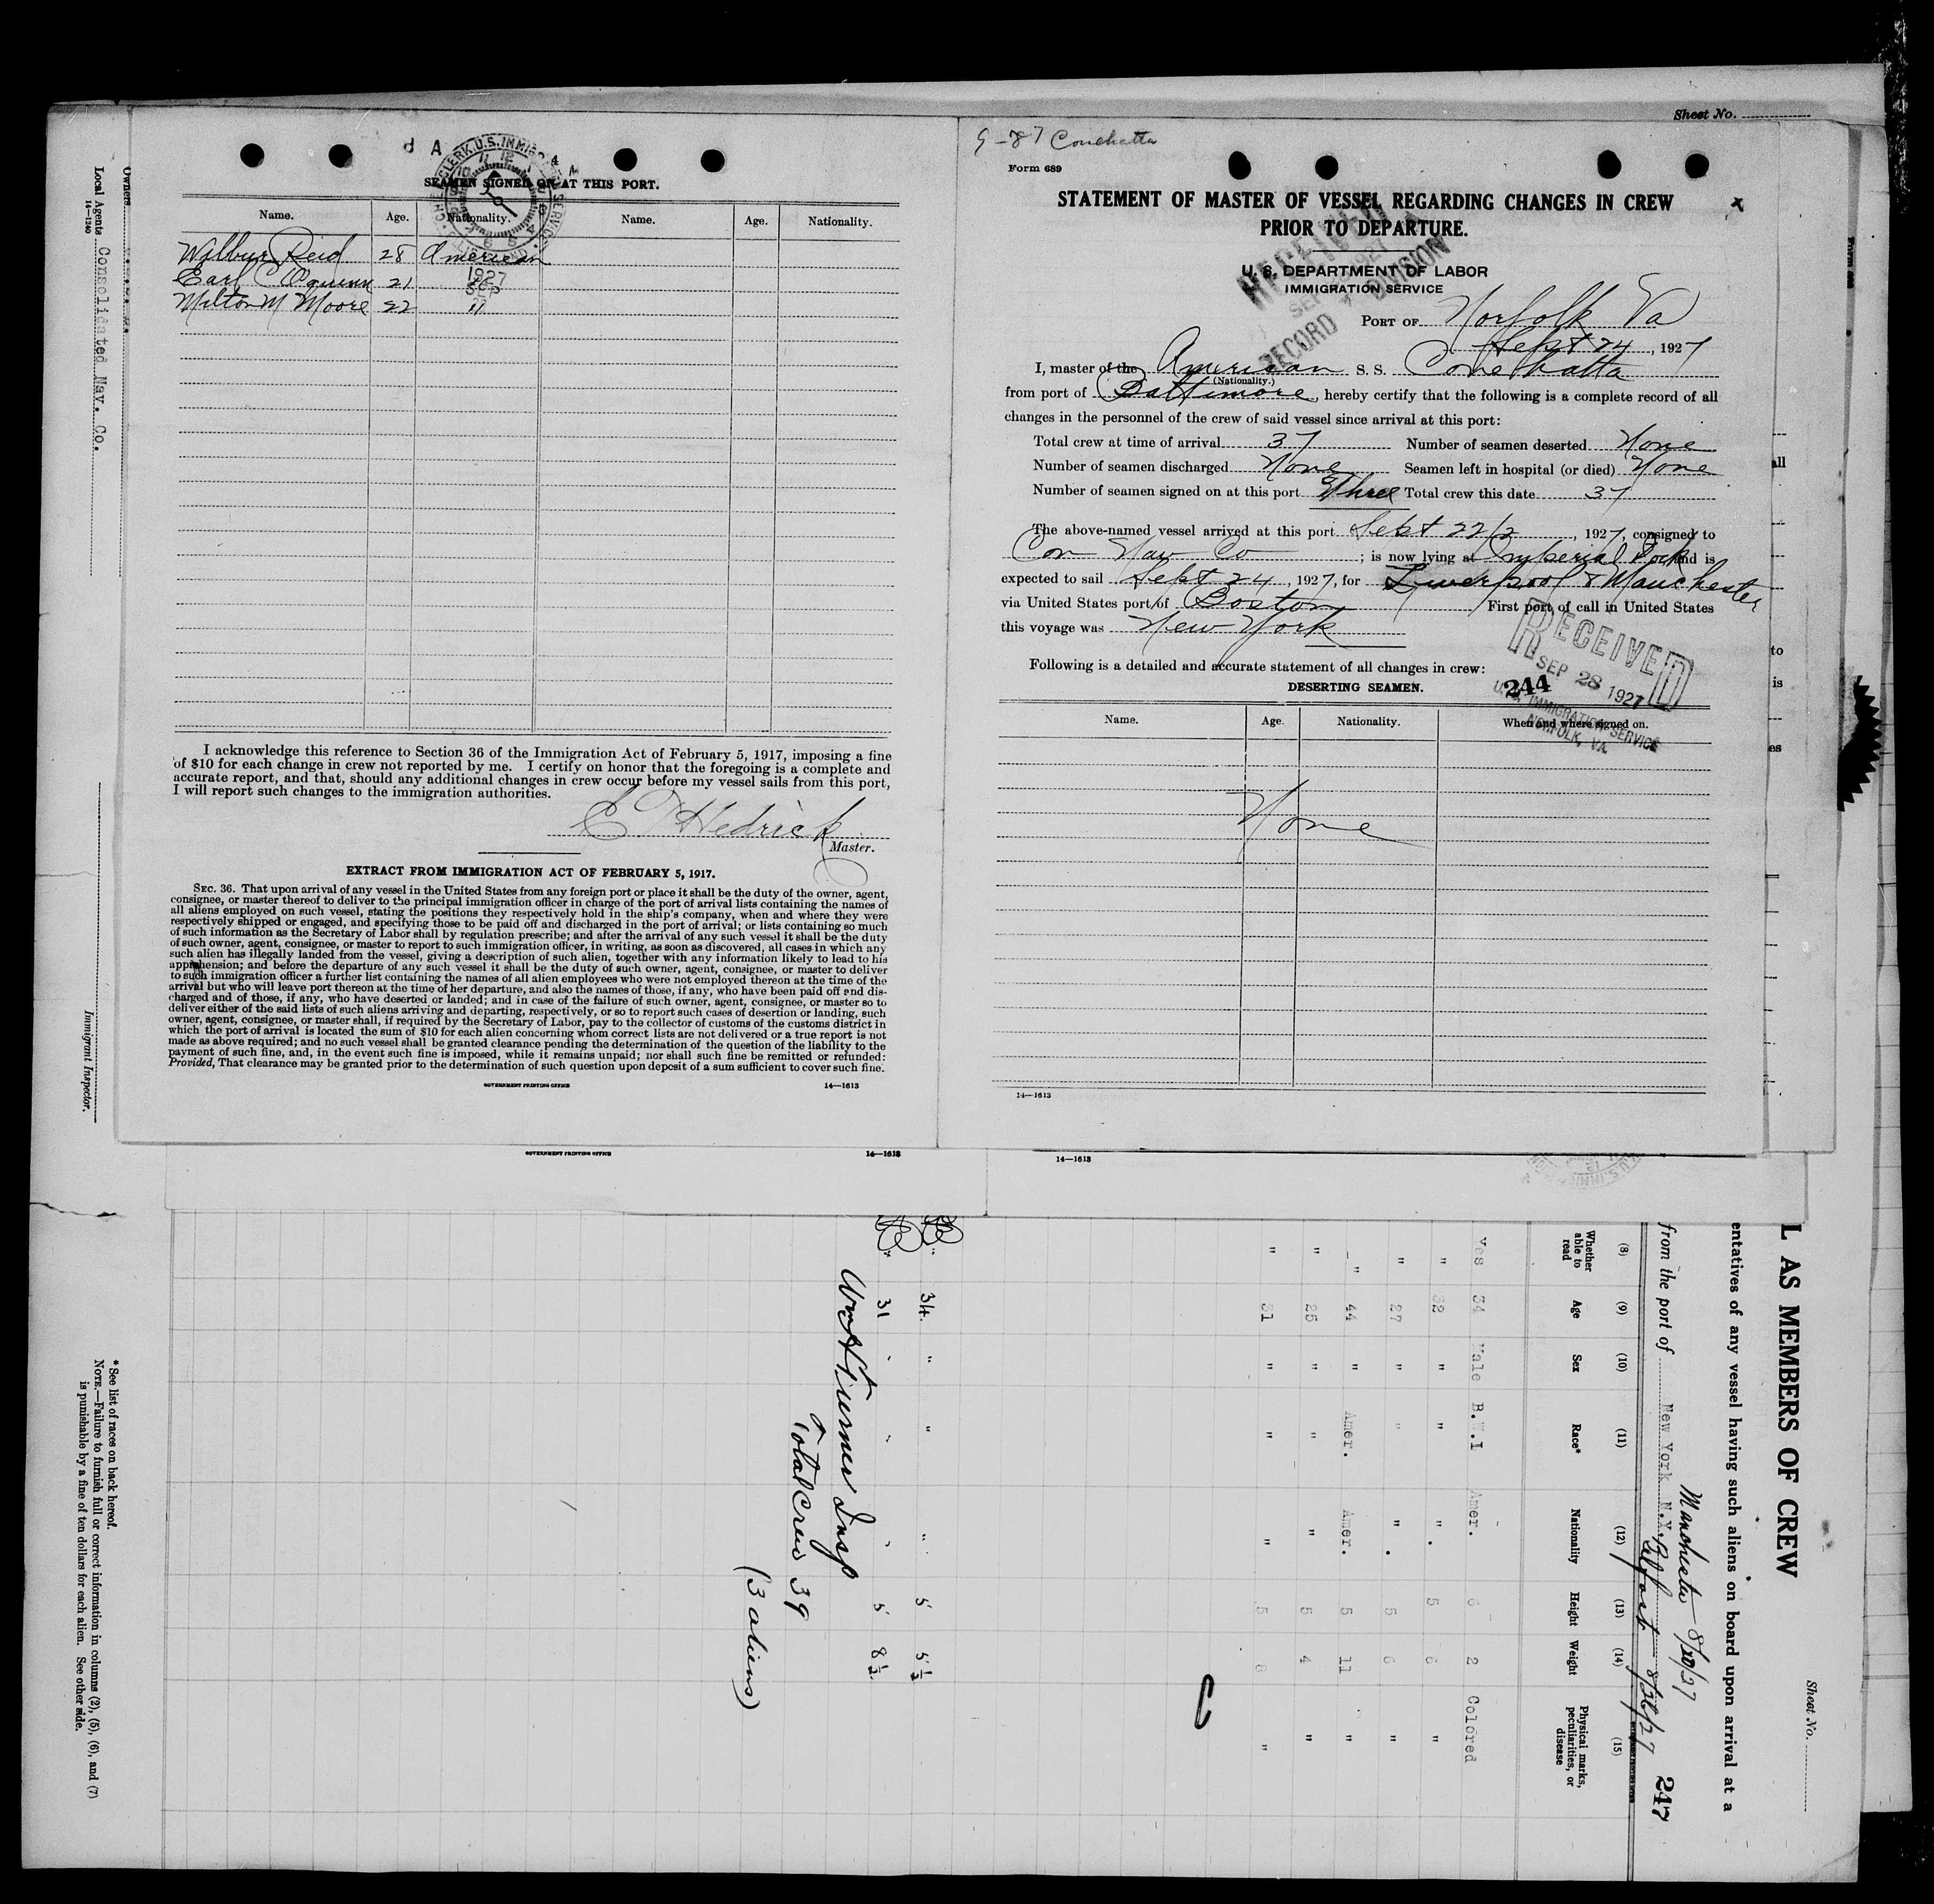 Sheet No.
SEAMEN SIGNED ON AT THIS PORT.
Name. Age. Nationality. Name. Age. Nationality.
Wilbur Reid 28 American
Earl C Oquinn 21 "
Milton M Moore 22 "
1927
SEP
I acknowledge this reference to Section 36 of the Immigration Act of February 5, 1917, imposing a fine
of $10 for each change in crew not reported by me. I certify on honor that the foregoing is a complete and
accurate report, and that, should any additional changes in crew occur before my vessel sails from this port,
I will report such changes to the immigration authorities.
C T Hedrick
Master.
EXTRACT FROM IMMIGRATION ACT OF FEBRUARY 5, 1917.
SEC. 36. That upon arrival of any vessel in the United States from any foreign port or place it shall be the duty of the owner, agent,
consignee, or master thereof to deliver to the principal immigration officer in charge of the port of arrival lists containing the names of
all aliens employed on such vessel, stating the positions they respectively hold in the ship's company, when and where they were
respectively shipped or engaged, and specifying those to be paid off and discharged in the port of arrival; or lists containing so much
of such information as the Secretary of Labor shall by regulation prescribe; and after the arrival of any such vessel it shall be the duty
of such owner, agent, consignee, or master to report to such immigration officer, in writing, as soon as discovered, all cases in which any
such alien has illegally landed from the vessel, giving a description of such alien, together with any information likely to lead to his
apprehension; and before the departure of any such vessel it shall be the duty of such owner, agent, consignee, or master to deliver
to such immigration officer a further list containing the names of all alien employees who were not employed thereon at the time of the
arrival but who will leave port thereon at the time of her departure, and also the names of those, if any, who have been paid off and dis-
charged and of those, if any, who have deserted or landed; and in case of the failure of such owner, agent, consignee, or master so to
deliver either of the said lists of such aliens arriving and departing, respectively, or so to report such cases of desertion or landing, such
owner, agent, consignee, or master shall, if required by the Secretary of Labor, pay to the collector of customs of the customs district in
which the port of arrival is located the sum of $10 for each alien concerning whom correct lists are not delivered or a true report is not
made as above required; and no such vessel shall be granted clearance pending the determination of the question of the liability to the
payment of such fine, and, in the event such fine is imposed, while it remains unpaid; nor shall such fine be remitted or refunded:
Provided, That clearance may be granted prior to the determination of such question upon deposit of a sum sufficient to cover such fine.
GOVERNMENT PRINTING OFFICE 14—1613
Conehatta
Form 689
STATEMENT OF MASTER OF VESSEL REGARDING CHANGES IN CREW
PRIOR TO DEPARTURE.
U. S. DEPARTMENT OF LABOR
IMMIGRATION SERVICE
RECEIVED
SEP 1927
RECORD DIVISION
PORT OF Norfolk Va
Sept 24, 1927
I, master of the American S. S. Conehatta
(Nationality.)
from port of Baltimore, hereby certify that the following is a complete record of all
changes in the personnel of the crew of said vessel since arrival at this port:
Total crew at time of arrival 37 Number of seamen deserted None
Number of seamen discharged None Seamen left in hospital (or died) None
Number of seamen signed on at this port Three Total crew this date 37
The above-named vessel arrived at this port Sept 22/2, 1927, consigned to
Con Nav Co; is now lying at Imperial Dock and is
expected to sail Sept 24, 1927, for Liverpool & Manchester
via United States port of Boston First port of call in United States
this voyage was New York
Following is a detailed and accurate statement of all changes in crew:
RECEIVED
SEP 28 1927
U.S. IMMIGRATION SERVICE
NORFOLK, VA.
244
DESERTING SEAMEN.
Name. Age. Nationality. When and where signed on.
None
14—1613
GOVERNMENT PRINTING OFFICE 14—1613
14—1613
Owners
Local Agents Consolidated Nav. Co.
14—1240
Immigrant Inspector.
Sheet No.
L AS MEMBERS OF CREW
entatives of any vessel having such aliens on board upon arrival at a
Manchester 8/20/27
from the port of New York N.Y. Belfast 8/26/27 247
(8) (9) (10) (11) (12) (13) (14) (15)
Whether able to read Age Sex Race* Nationality Height Weight Physical marks, peculiarities, or disease
Yes 34 Male B.W.I Amer. 6 2 Colored
" 32 " " " 5 6 "
" 27 " " " 5 6 "
" 44 " Amer. Amer. 5 11 "
" 25 " " " 5 4 "
" 31 " " " 5 8 "
" 34 " " " 5 5½
" 31 " " " 5 8½
Wm H Turner Insp
Total Crew 39
(3 aliens)
* See list of races on back hereof.
NOTE.—Failure to furnish full or correct information in columns (2), (5), (6), and (7)
is punishable by a fine of ten dollars for each alien. See other side.